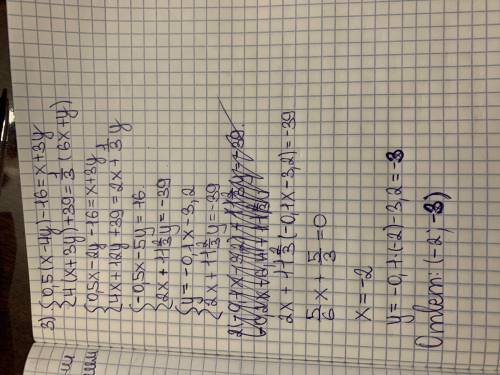 3) { 0,5(x-4y)-16=x+3y
{ 4(x+3y)+39=1/3(6x+y)
{ 0,5x-2y-16=x+3y
{ 4x+12y+39=2x+1/3y
{ -0,5x-5y=16
{ 2x+11 2/3y=-39
{ y=-0,1x-3,2
{ 2x+11 2/3y=-39
2x+11 2/3(-0,1x-3,2)=-39
5/6x+5/3=0
x=-2
y=-0,1·(-2)-3,2=-3
Ответ: (-2; -3)